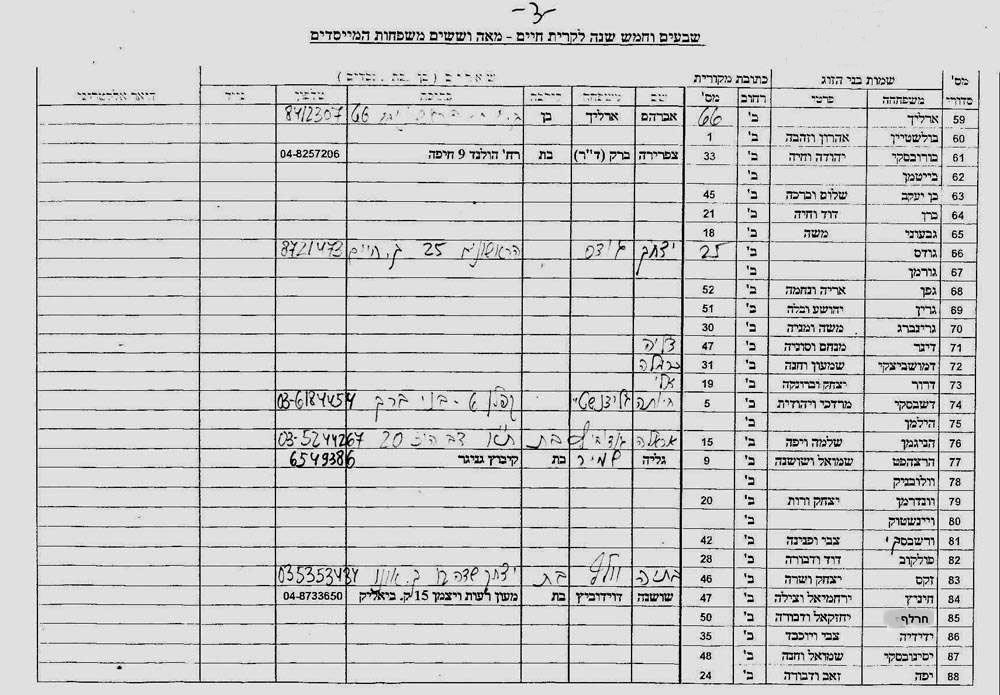 -3-
שבעים וחמש שנה לקרית חיים - מאה וששים משפחות המייסדים
מס' שמות בני הזוג כתובת מקורית
סדורי משפחתה פרטי רחוב מס' שם משפחה קירבה כתובת טלפון נייד דואר אלקטרוני
59 ארליך ב' 66 אברהם ארליך בן 66 8412307
60 בולשטיין אהרון וזהבה ב' 1
61 בורובסקי יהודה וחיה ב' 33 צפרירה ברק (ד"ר) בת רח' הולנד 9 חיפה 04-8257206
62 בייטמן ב'
63 בן יעקב שלום וברכה ב' 45
64 ברן דוד וחיה ב' 21
65 גבעוני משה ב' 18
66 גודס ב' 25 יצחק גודס הראשונים 25 ק. חיים 8721473
67 גורמן ב'
68 גפן אריה ונחמה ב' 52
69 גרין יהושע ובלה ב' 51
70 גרינברג משה ומניה ב' 30
71 דינר מנחם וסוניה ב' 47
72 דמושביצקי שמעון וחנה ב' 31
73 דרור יצחק וברינקה ב' 19
74 דשבסקי מרדכי ויהודית ב' 5 קפלן 6 - בני ברק 03-6184454
75 הילמן ב'
76 הניגמן שלמה ויפה ב' 15 בת ת"א 20 03-5244267
77 הרצהפט שמואל ושושנה ב' 9 גליה שמיר בת קיבוץ גניגר 6549386
78 וולובניק ב'
79 וונדרמן יצחק ורות ב' 20
80 ויינשטוק ב'
81 ורשבסקי צבי ופנינה ב' 42
82 פולקוב דוד ודבורה ב' 28
83 זקס יצחק ושרה ב' 46 בתיה וולף בת יצחק שדה ק. אונו 035353484
84 חיניץ ירחמיאל וצילה ב' 47 שושנה דוידוביץ בת מעון רעות ויצמן 15 ק. ביאליק 04-8733650
85 חרלף יחזקאל ודבורה ב' 50
86 ידידיה צבי ויוכבד ב' 35
87 יסינובסקי שמואל וחנה ב' 48
88 יפה זאב ודבורה ב' 24